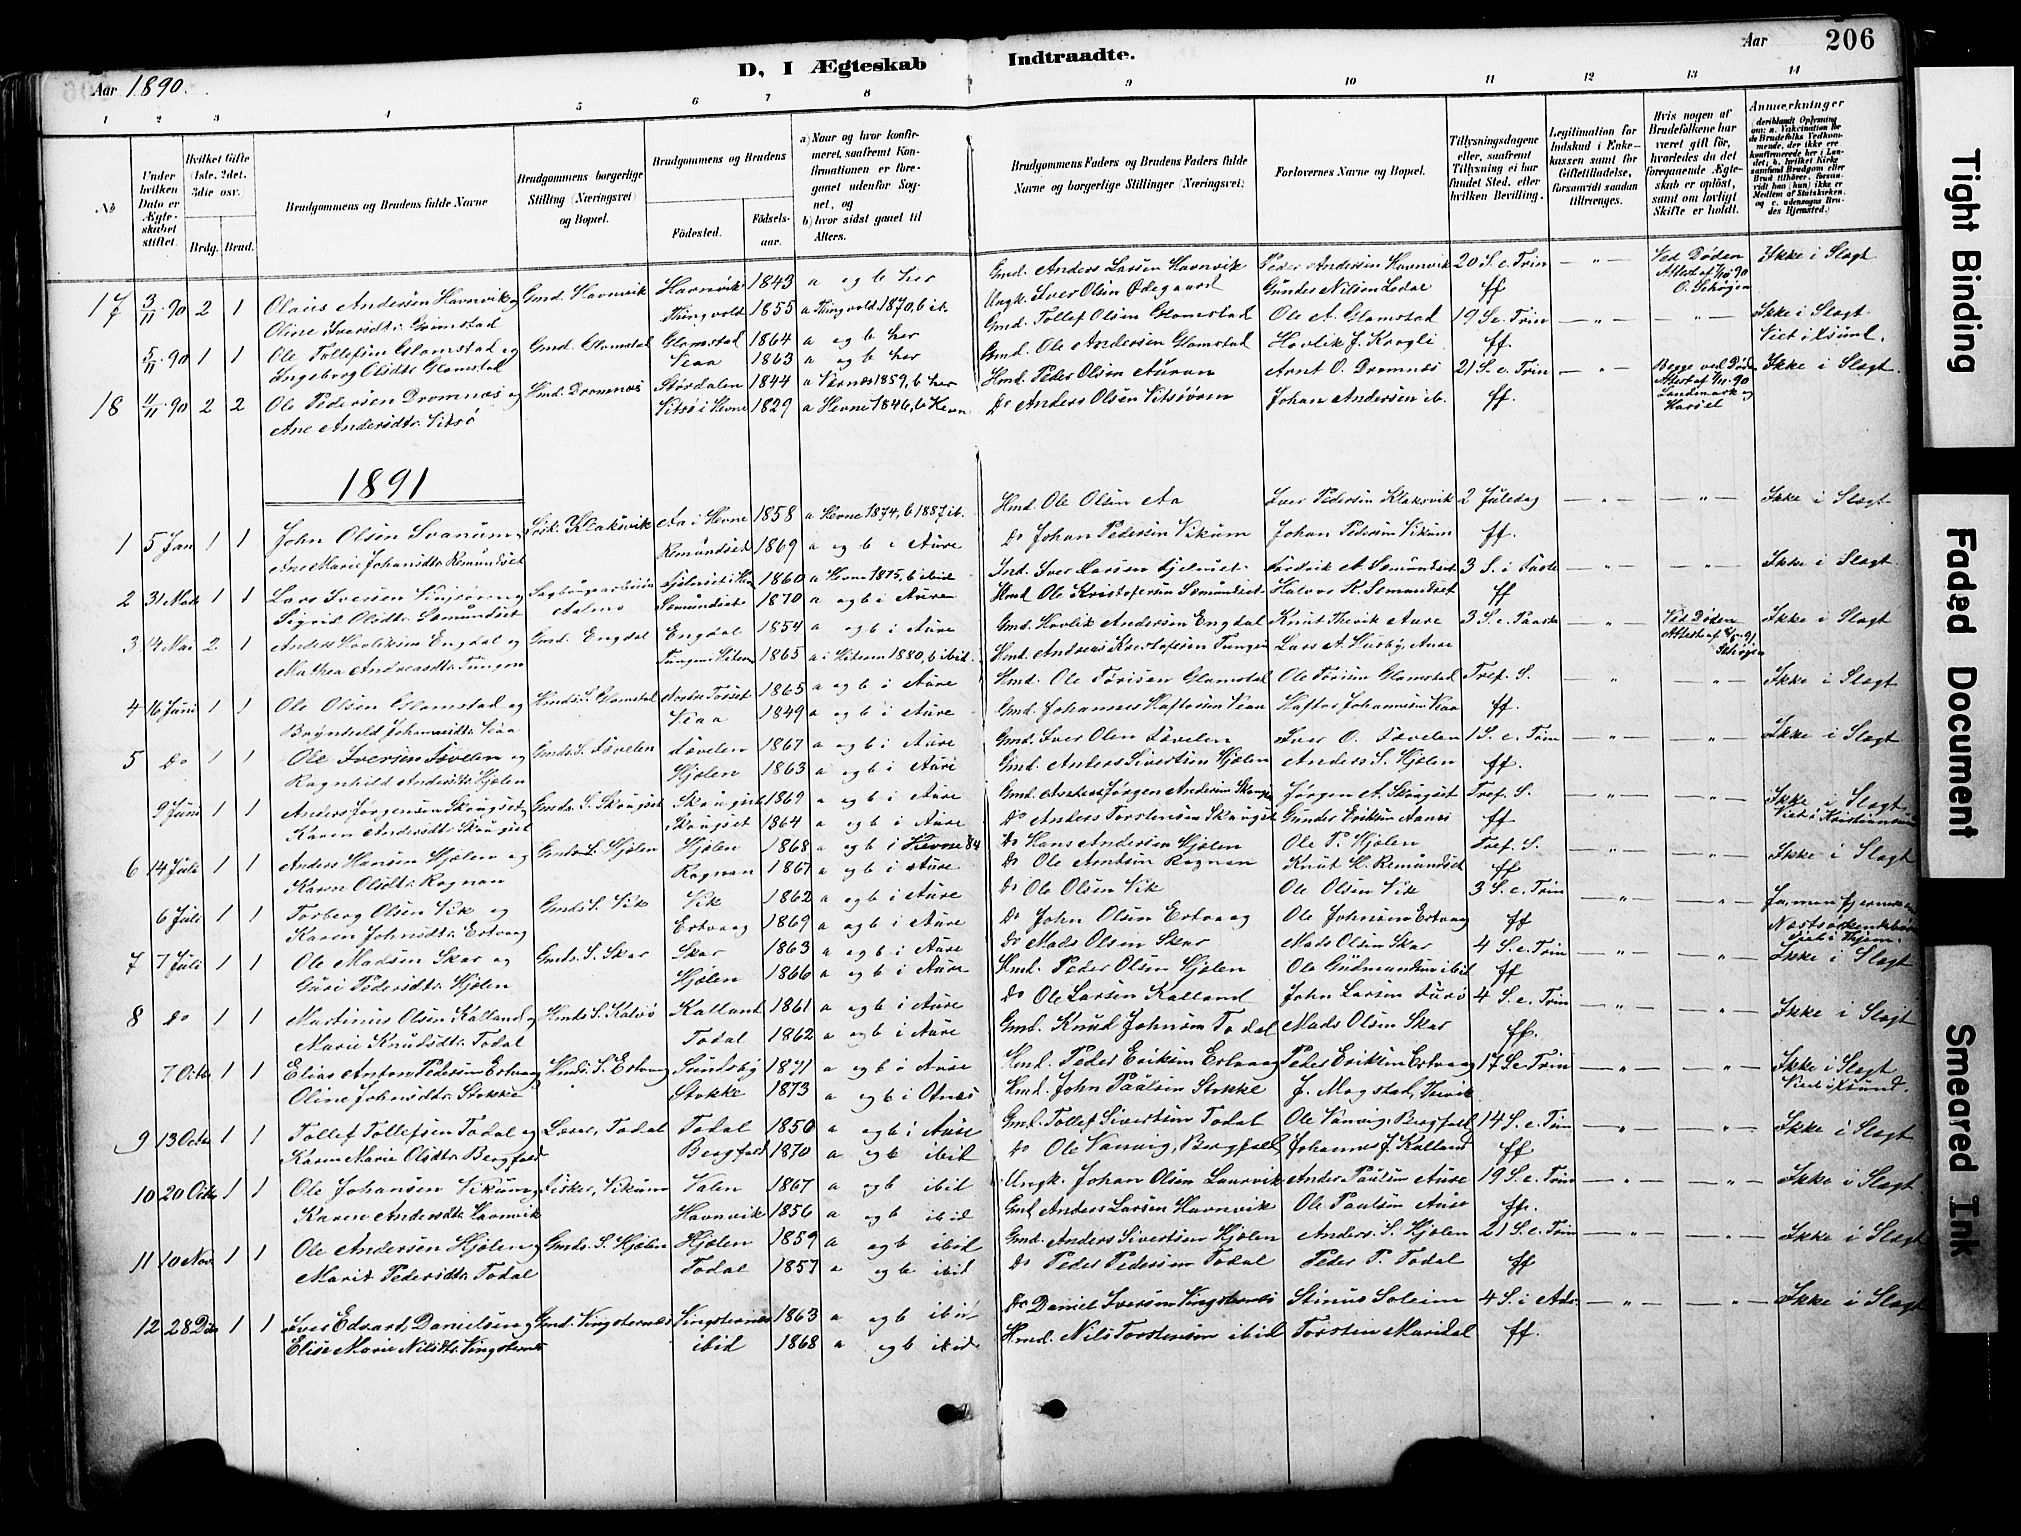 Aar 1890.
D, I Ægteskab Indtraadte.
Aar 206
1 2 3 4 5 6 7 8 9 10 11 12 13 14
No
Under hvilken Dato er Ægteskabet stiftet.
Hvilket Gifte (1ste, 2det, 3die osv.
Brdg. Brud.
Brudgommens og Brudens fulde Navne
Brudgommens borgerlige Stilling (Næringsvei) og Bopæl.
Brudgommens og Brudens
Fødested. Fødselsaar.
a) Naar og hvor konfirmeret, saafremt Konfirmationen er foregaaet udenfor Sognet, og
b) hvor sidst gaaet til Alters.
Brudgommens Faders og Brudens Faders fulde Navne og borgerlige Stillinger (Næringsvei)
Forlovernes Navne og Bopæl.
Tillysningsdagene eller, saafremt Tillysning ei har fundet Sted, efter hvilken Bevilling.
Legitimation for Indskud i Enkekassen samt for Giftetilladelse, forsaavidt saadan tiltrænges.
Hvis nogen af Brudefolkene har været gift før, hvorledes da det foregaaende Ægteskab er opløst, samt om lovligt Skifte er holdt.
Anmærkninger
17 3/11 90 2 1 Olaus Andersen Havnvik og Gmd. Havnvik Havnvik 1843 a og b her Gmd. Anders Larsen Havnvik Peder Andersen Havnvik 20 S. e. Trin — " — Ved Døden Ikke i Slægt
Oline Iversdtr. Grimstad Thingvold 1855 a Thingvold 1870, b ib. Ungk. Iver Olsen Ødegaard Gunder Nilsen Ledal ff
5/11 90 1 1 Ole Tollefsen Glamstad og Gmd. Glamstad Glamstad 1864 a og b her Gmd. Tollef Olsen Glamstad Ole A. Glamstad 19 S. e. Trin — " — — " — Ikke i Slægt
Ingeborg Olsdtr. Glamstad Veaa 1863 a og b her Gmd. Ole Andersen Glamstad ff. Viet i Xsund.
18 11/11 90 2 2 Ole Pedersen Dromnæs og Hmd. Dromnæs Størdalen 1844 a Værnes 1859, b her Hmd. Peder Olsen Auran Arnt O. Dromnæs 21 S. e. Trin — " — Begge ved Død Ikke i Slægt
Ane Andersdtr. Vitsø Vitsø i Hevne 1829 a Hevne 1846, b Hevn Do Anders Olsen Vitsøvom Johan Andersen ib. ff.
1891
1 5 Jan 1 1 John Olsen Svanum Klaksvik Aa i Hevne 1858 a Hevne 1874, b 1887 ib. Hmd. Ole Olsen Aa Iver Pedersen Klaksvik 2 Juledag — " — — " — Ikke i Slægt
Ane Marie Johansdtr. Remundset Remundset 1869 a og b i Aure Do Johan Pedersen Vikum Johan Pedersen Vikum ff.
2 31 1 1 Lars Iversen og Aalmo 1860 a Hevne 1875, b ibid Ind. Iver Larsen 3 S. i Faste — " — — " — Ikke i Slægt
Sigrid Olsdtr. Semundset Semundset 1870 a og b i Aure Hmd Ole Kristofersen Semundset Halvor K. Semundset ff
3 14 2 1 Anders Hovliksen Engdal og Gmd. Engdal Engdal 1854 a og b i Aure Gmd. Hovlik Andersen Engdal Knut Thevik Aure 3 S. e. Paaske — " — Ved Døden Ikke i Slægt
Mathea Andreasdtr. Tungen 1865 a i Hitern 1880, b ibid. Hmd. Andreas Kristofersen Tungen Lars A. Husby, Aure
4 16 Juni 1 1 Ole Olsen Glamstad og Hmds. S. Glamstad 1865 a og b i Aure Hmd. Ole Torisen Glamstad Ole Torisen Glamstad Tref. S. " — " — Ikke i Slægt
Brynhild Johannesdtr. Veaa Veaa 1849 a og b i Aure Gmd. Johannes Haftorsen Veaa Haftor Johannesen Veaa ff.
5 Do 1 1 Ole Iversen Tøvelen og Gmds. S. Tøvelen Tøvelen 1867 a og b i Aure Gmd. Iver Olsen Tøvelen Iver O. Tøvelen 1 S. e. Trin — " — — " — Ikke i Slægt
Ragnhild Andersdtr. Hjølen Hjølen 1863 a og b i Aure Gmd. Anders Sivertsen Hjølen Anders S. Hjølen ff.
9 Juni 1 1 Anders Jørgensen Skougset og Gmds. S. Skougset Skougset 1869 a og b i Aure Gmd. Jørgen Andersen Skougset Jørgen A. Skougset Tref. S. — " — — " — Ikke i Slægt
Karen Andersdtr. Skougset Skougset 1864 a og b i Aure Do Anders Torstensen Skougset Gunder Eriksen Aanes ff Viet i Kristiansund
6 14 Juli 1 1 Anders Hansen Hjølen og Gmds. S. Hjølen Hjølen 1868 a og b i Hevne 84 Do Hans Andersen Hjølen Ole P. Hjølen Tref. S. — " — — " — Ikke i Slægt
Karen Olsdtr. Rognan Rognan 1867 a og b i Aure Do Ole Arntsen Rognan Knut H. Remundset ff
6 Juli 1 1 Torberg Olsen Vik og Gmds. S. Vik Vik 1862 a og b i Aure Do Ole Olsen Vik Ole Olsen Vik 3 S. e. Trin — " — — " — Ja, men fjernere
Karen Johnsdtr. Ertvaag Ertvaag 1869 a og b i Aure Do John Olsen Ertvaag Ole Johnsen Ertvaag ff
7 7 Juli 1 1 Ole Madsen Skar og Gmds. S. Skar Skar 1863 a og b i Aure Do Mads Olsen Skar Mads Olsen Skar 4 S. e. Trin — " — — " — Ikke i Slægt
Guri Pedersdtr. Hjølen Hjølen 1866 a og b i Aure Hmd. Peder Olsen Hjølen Ole Gudmundsen ibid ff
8 Do 1 1 Martinus Olsen Kalland og Hmds. S. Kalvø Kalland 1861 a og b i Aure Do Ole Larsen Kalland John Larsen Furø 4 S. e. Trin — " — — " — Ikke i Slægt
Marie Knudsdtr. Todal Todal 1862 a og b i Aure Gmd. Knud Johnsen Todal Mads Olsen Skar ff.
7 Octbr 1 1 Elias Anton Pedersen Ertvaag Hmds. S. Ertvaag Sundsby 1871 a og b i Aure Hmd. Peder Eriksen Ertvaag Peder Eriksen Ertvaag 17 S. e. Trin — " — — " — Ikke i Slægt
Oline Johnsdtr. Stokke Stokke 1873 a og b i Hmd. John Paulsen Stokke J. Magstad, Thevik Viet i Xsund.
9 13 Octbr 1 1 Tollef Tollefsen Todal og Lærer, Todal Todal 1850 a og b i Aure Gmd. Tollef Sivertsen Todal Ole Vanvig, Bergfald 14 S. e. Trin — " — — " — Ikke i Slægt
Karen Marie Olsdtr. Bergfald Bergfald 1870 a og b ibid Do Ole Vanvig, Bergfald Johannes J. Kalland ff
10 20 Octbr 1 1 Ole Johansen Vikum og Fisker, Vikum Valen 1867 a og b ibid Ungk. Johan Olsen Laurvik Anders Paulsen Aure 19 S. e. Trin — " — — " — Ikke i Slægt
Karen Andersdtr. Havnvik Havnvik 1856 a og b ibid Gmd. Anders Larsen Havnvik Ole Paulsen Aure ff.
11 10 Nov. 1 1 Ole Andersen Hjølen og Gmds. S. Hjølen Hjølen 1859 a og b ibid Gmd. Anders Sivertsen Hjølen Anders S. Hjølen 21 S. e. Trin — " — — " — Ikke i Slægt
Marit Pedersdtr. Todal Todal 1857 a og b ibid Do Peder Pedersen Todal Peder P. Todal ff
12 28 Dec 1 1 Iver Edvart Danielsen og Gmd. Vingsternes Vingsternes 1863 a og b ibid Do Daniel Iversen Vingsternes Stinus Soleim 4 S. i Adv. — " — — " — Ikke i Slægt
Elise Marie Nilsdtr. Vingsternes ibid 1868 a og b ibid Hmd. Nils Torstensen ibid Torsten Maridal ff.
Tight Binding
Faded Document
Smeared Ink